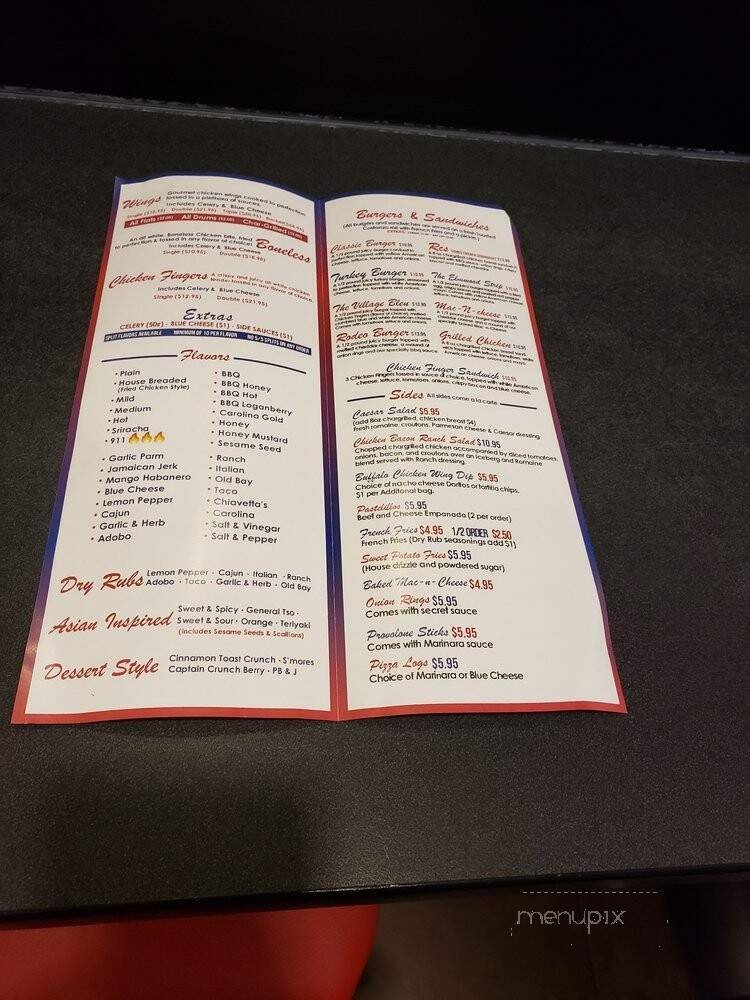 Wings
Gourmet chicken wings cooked to perfection
tossed in a plethora of sauces.
Includes Celery & Blue Cheese
Single ($12.95) Double ($21.95)
All Flats All Drums Char-Grilled
An all white, Boneless Chicken bite, fried
to perfection & tossed in any flavor of choice!
Boneless
Includes Celery & Blue Cheese
Single ($10.95) Double ($18.95)
Chicken Fingers
A crispy and juicy all white chicken
tender tossed in any flavor of choice.
Includes Celery & Blue Cheese
Single ($12.95) Double ($21.95)
Extras
CELERY (50¢) - BLUE CHEESE ($1) - SIDE SAUCES ($1)
SPLIT FLAVORS AVAILABLE MINIMUM OF 10 PER FLAVOR NO 5/5 SPLITS ON ANY ORDER
Flavors
• Plain
• House Breaded
(Fried Chicken Style)
• Mild
• Medium
• Hot
• Sriracha
• 911 🔥🔥🔥
• Garlic Parm
• Jamaican Jerk
• Mango Habanero
• Blue Cheese
• Lemon Pepper
• Cajun
• Garlic & Herb
• Adobo
• BBQ
• BBQ Honey
• BBQ Hot
• BBQ Loganberry
• Carolina Gold
• Honey
• Honey Mustard
• Sesame Seed
• Ranch
• Italian
• Old Bay
• Taco
• Chiavetta's
• Carolina
• Salt & Vinegar
• Salt & Pepper
Dry Rubs
Lemon Pepper - Cajun - Italian - Ranch
Adobo - Taco - Garlic & Herb - Old Bay
Asian Inspired
Sweet & Spicy - General Tso -
Sweet & Sour - Orange - Teriyaki
(Includes Sesame Seeds & Scallions)
Dessert Style
Cinnamon Toast Crunch - S'mores
Captain Crunch Berry - PB & J
Burgers & Sandwiches
(All burgers and sandwiches are served on a fresh toasted
Costanzo roll with French Fries and a pickle.)
Classic Burger
A 1/3 pound juicy burger cooked to
perfection topped with yellow American
cheese, lettuce, tomatoes, onion.
Turkey Burger
The Village Bleu
Rodeo Burger
A 1/3 pound juicy burger topped with
melted cheddar cheese, a mound of
onion rings and our specialty bbq sauce.
Res
The Elmwood Strip
Mac-N-cheese
Grilled Chicken
Chicken Finger Sandwich
3 Chicken Fingers tossed in sauce of choice, topped with white American
cheese, lettuce, tomatoes, onions, crispy bacon and blue cheese.
Sides All sides come a la carte
Caesar Salad $5.95
(add 8oz chargrilled, chicken breast $4)
Fresh romaine, croutons, Parmesan Cheese & Caesar dressing
Chicken Bacon Ranch Salad $10.95
Chopped chargrilled chicken accompanied by diced tomatoes,
onions, bacon, and croutons over an Iceberg and Romaine
blend served with Ranch dressing.
Buffalo Chicken Wing Dip $5.95
Choice of nacho cheese Doritos or tortilla chips.
$1 per Additional bag.
Pastelillos $5.95
Beef and Cheese Empanada (2 per order)
French Fries $4.95 1/2 ORDER $2.50
French Fries (Dry Rub seasonings add $1)
Sweet Potato Fries $5.95
(House drizzle and powdered sugar)
Baked Mac-n-Cheese $4.95
Onion Rings $5.95
Comes with secret sauce
Provolone Sticks $5.95
Comes with Marinara sauce
Pizza Logs $5.95
Choice of Marinara or Blue Cheese
menupix